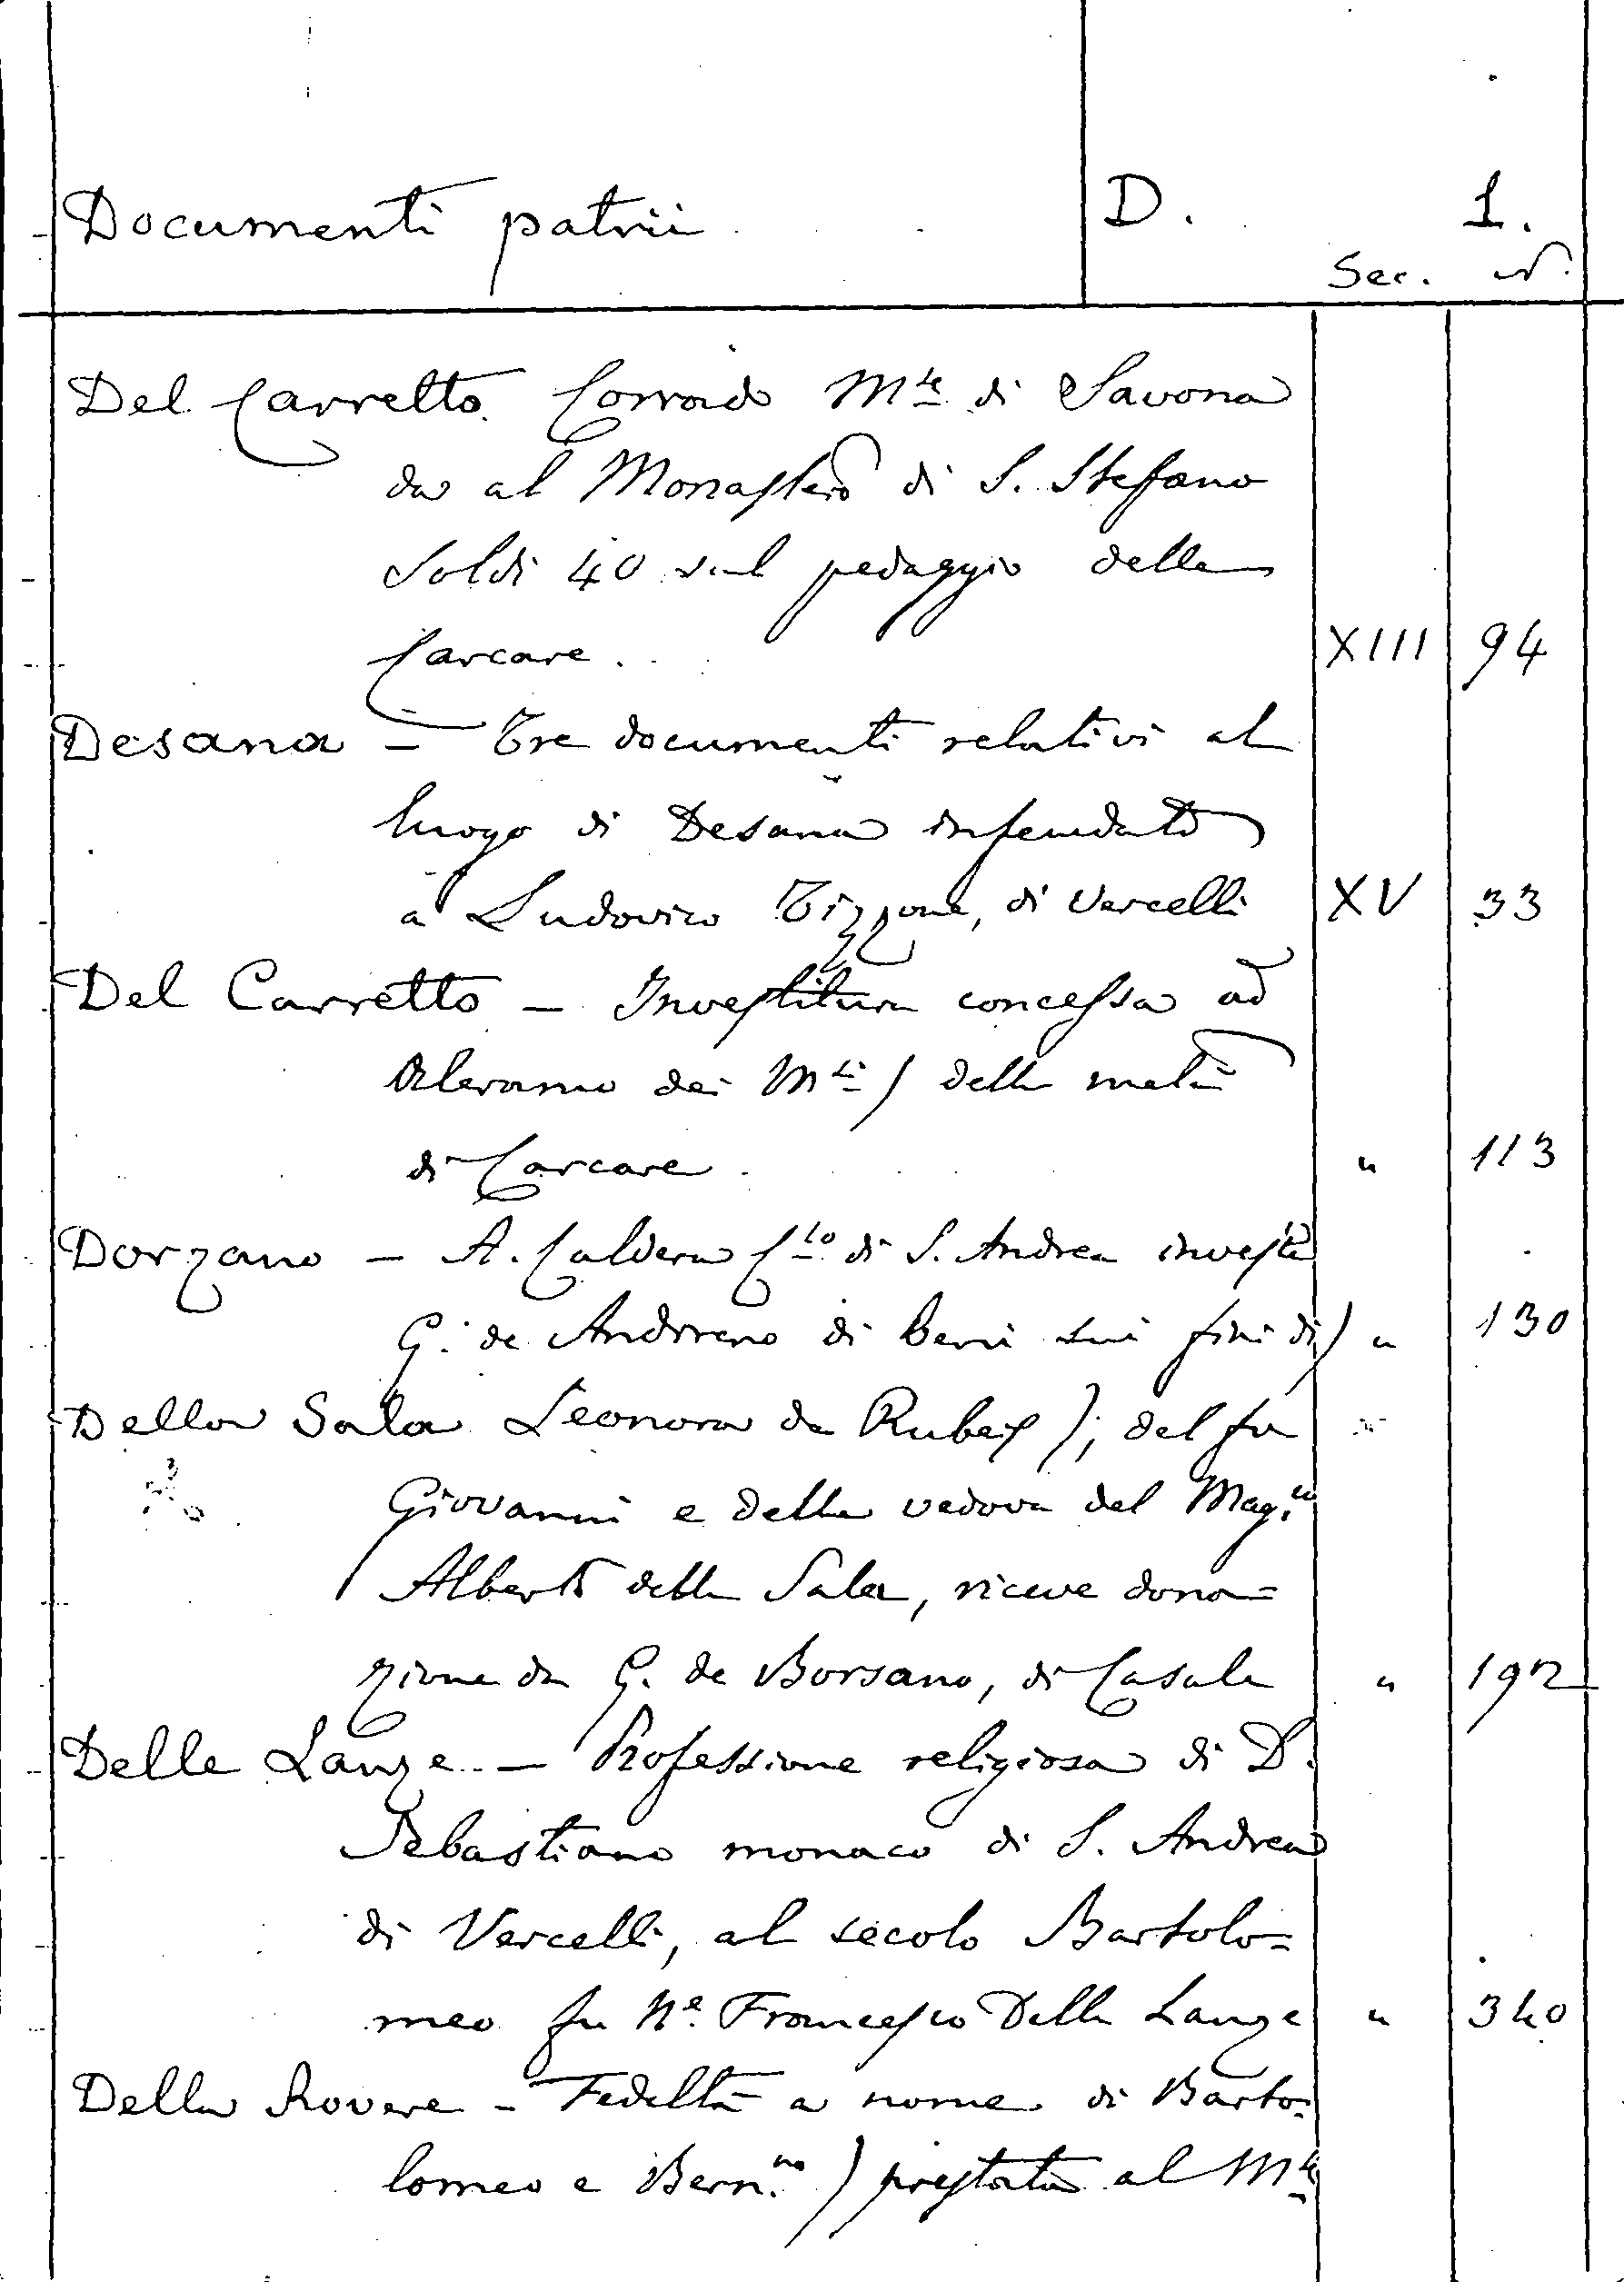 Documenti patrii D. 1.
Sec. N.
Del Carretto Corrado M.te di Savona
da al Monastero di S. Steffano
Soldi 40 sul pedaggio delle
Carcare. XIII 94
Desana - Tre documenti relativi al
luogo di Desana infeudato
a Ludovico Tizzone, di Vercelli XV 33
Del Carretto - Investitura concessa ad
Aleramo dei M.ti ) della metà
di Carcare. " 113
Dorzano - A. Caldera C.to di S. Andrea investe
G. de Andreeno di beni sui fini di ) " 130
Della Sala Leonora de Rubeis ); del fu
Giovanni e della vedova del Mag.co
Alberto della Sala, riceve dona=
zione da G. de Borsano, di Casale " 192
Delle Lanze - Professione religiosa di D.
Sebastiano monaco di S. Andrea
di Vercelli, al secolo Bartolo=
meo fu N.e Francesco Delle Lanze " 340
Della Rovere - Fedeltà a nome di Barto=
lomeo e Bern.no ) prestata al M.te